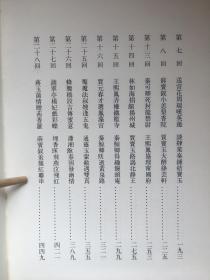 第七回 送宮花周瑞嘆英蓮 談肄業秦鐘結寶玉
第八回 薛寶釵小恙梨香院 賈寶玉大醉絳芸軒
第十三回 秦可卿死封龍禁尉 王熙鳳協理寧國府
第十四回 林如海捐館揚州城 賈寶玉路謁北靜王
第十五回 王熙鳳弄權鐵檻寺 秦鯨卿得趣饅頭庵
第十六回 賈元春才選鳳藻宮 秦鯨卿夭逝黃泉路
第二十五回 魘魔法叔嫂逢五鬼 通靈玉蒙蔽遇雙真
第二十六回 蜂腰橋設言傳蜜意 瀟湘館春困發幽情
第二十七回 滴翠亭楊妃戲彩蝶 埋香塚飛燕泣殘紅
第二十八回 蔣玉菡情贈茜香羅 薛寶釵羞籠紅麝串 四四九